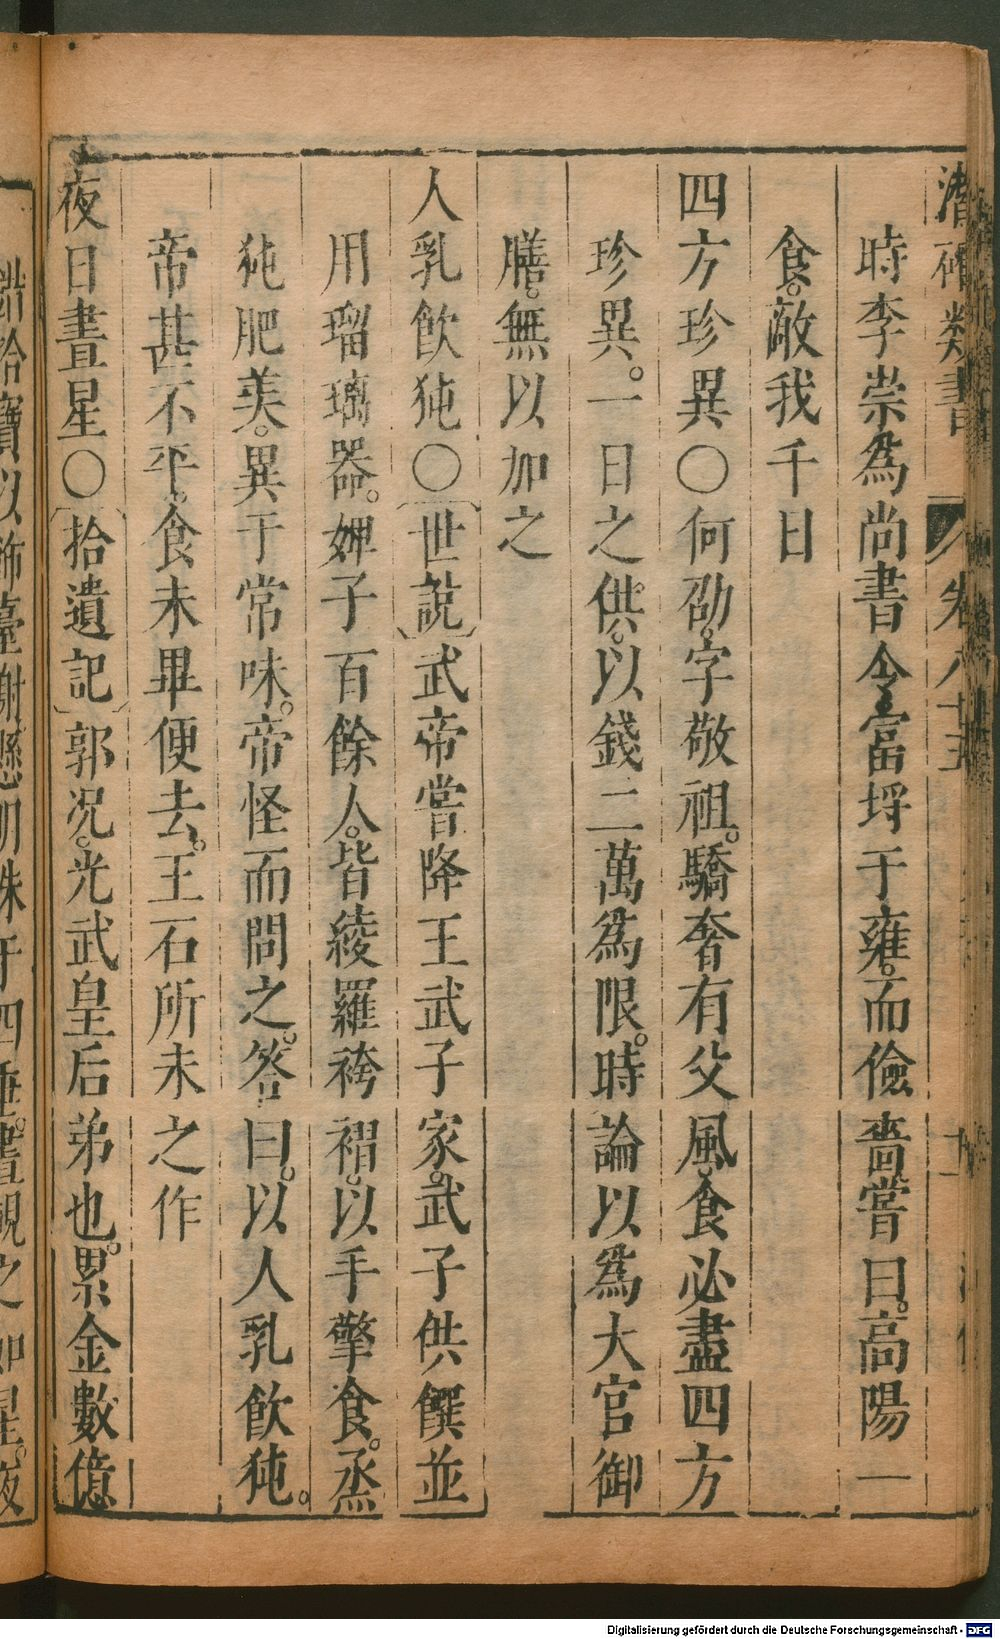 潛確類書 卷八十五 十一
時李崇爲尚書令富埒于雍而儉嗇嘗曰高陽一
食敵我千日
四方珍異〇何劭字敬祖驕奢有父風食必盡四方
珍異一日之供以錢二萬爲限時論以爲大官御
膳無以加之
人乳飲㹠〇世説武帝嘗降王武子家武子供饌並
用瑠璃器婢子百餘人皆綾羅袴褶以手擎食烝
㹠肥美異于常味帝怪而問之答曰以人乳飲㹠
帝甚不平食未畢便去王石所未之作
夜日晝星〇拾遺記郭况光武皇后弟也累金數億
錯拾寶以飾臺榭懸明珠于四垂晝視之如星夜
Digitalisierung gefördert durch die Deutsche Forschungsgemeinschaft - DFG